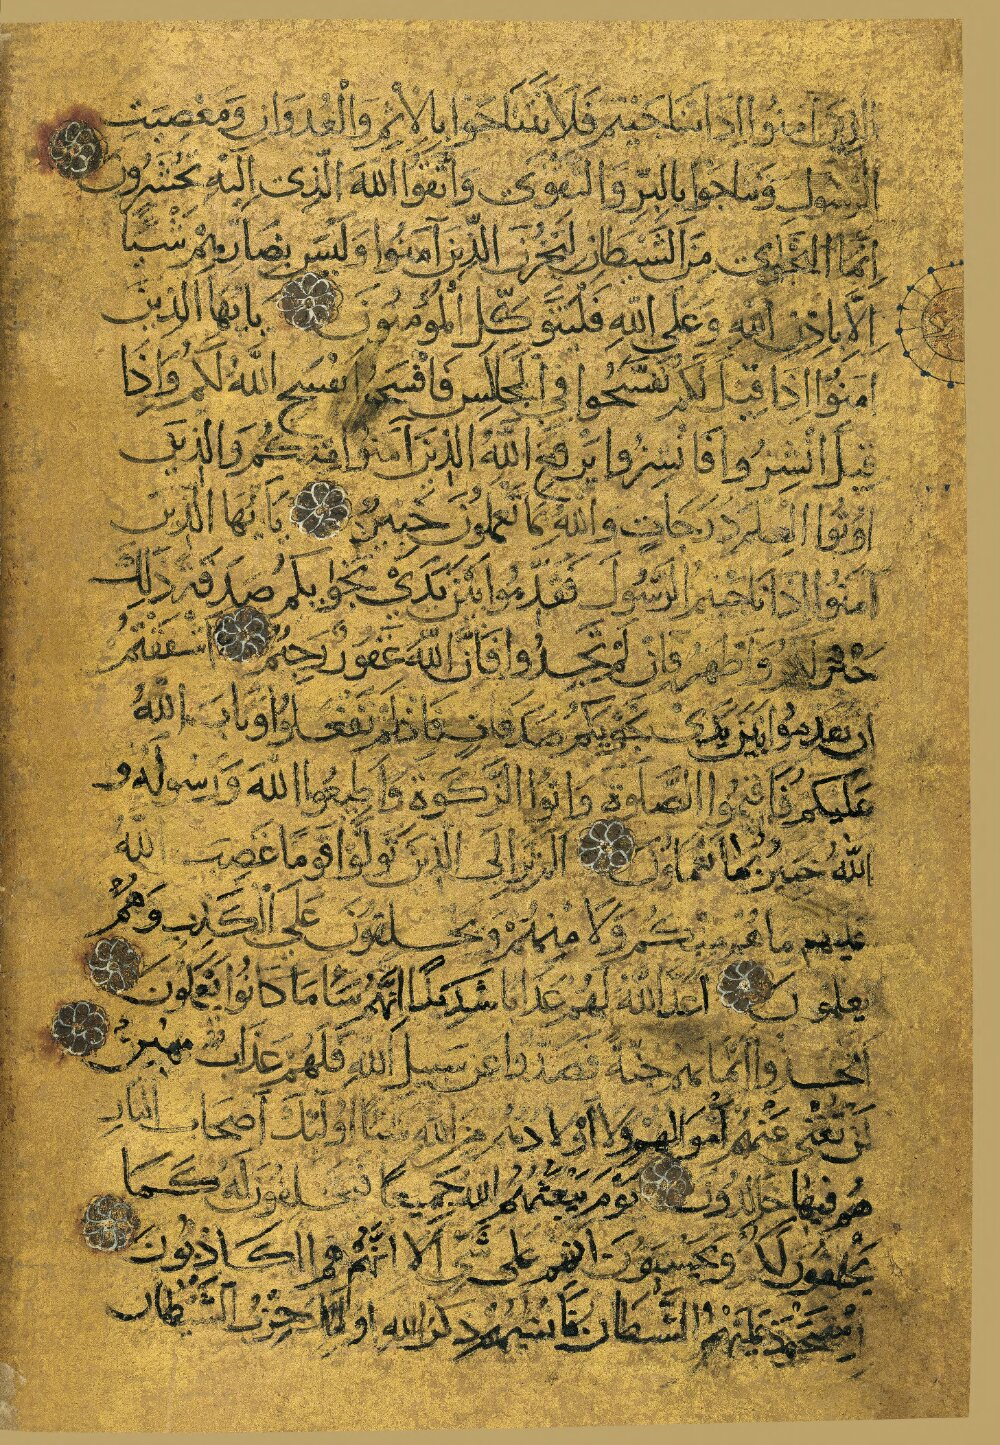 الذين آمنوا اذا تناجيتم فلا تتناجوا بالاثم والعدوان ومعصيت
الرسول وتناجوا بالبر والتقوى واتقوا الله الذى اليه تحشرون
انما النجوى من الشيطان ليحزن الذين آمنوا وليس بضارهم شيئا
الا باذن الله وعلى الله فليتوكل المؤمنون يا يها الذين
امنوا اذا قيل لكم تفسحوا فى المجالس فافسحوا يفسح الله لكم واذا
قيل انشزوا فانشزوا يرفع الله الذين آمنوا منكم والذين
اوتوا العلم درجات والله بما تعملون خبير يا يها الذين
آمنوا اذا ناجيتم الرسول فقدموا بين يدى نجويكم صدقة ذلك
خير لكم واطهر فان لم تجدوا فان الله غفور رحيم ءاشفقتم
ان تقدموا بين يدى نجويكم صدقات فاذ لم تفعلوا وتاب الله
عليكم فاقيموا الصلوة واتوا الزكوة واطيعوا الله ورسوله و
الله خبير بما تعملون الم تر الى الذين تولوا قوما غضب الله
عليهم ما هم منكم ولا منهم ويحلفون على الكذب وهم
يعلمون اعد الله لهم عذابا شديدا انهم ساء ما كانوا يعملون
اتخذوا ايمانهم جنة فصدوا عن سبيل الله فلهم عذاب مهين
لن تغنى عنهم اموالهم ولا اولادهم من الله شيئا اولئك اصحاب النار
هم فيها خالدون يوم يبعثهم الله جميعا فيحلفون له كما
يحلفون لكم ويحسبون انهم على شئ الا انهم هم الكاذبون
استحوذ عليهم الشيطان فانسيهم ذكر الله اولئك حزب الشيطان